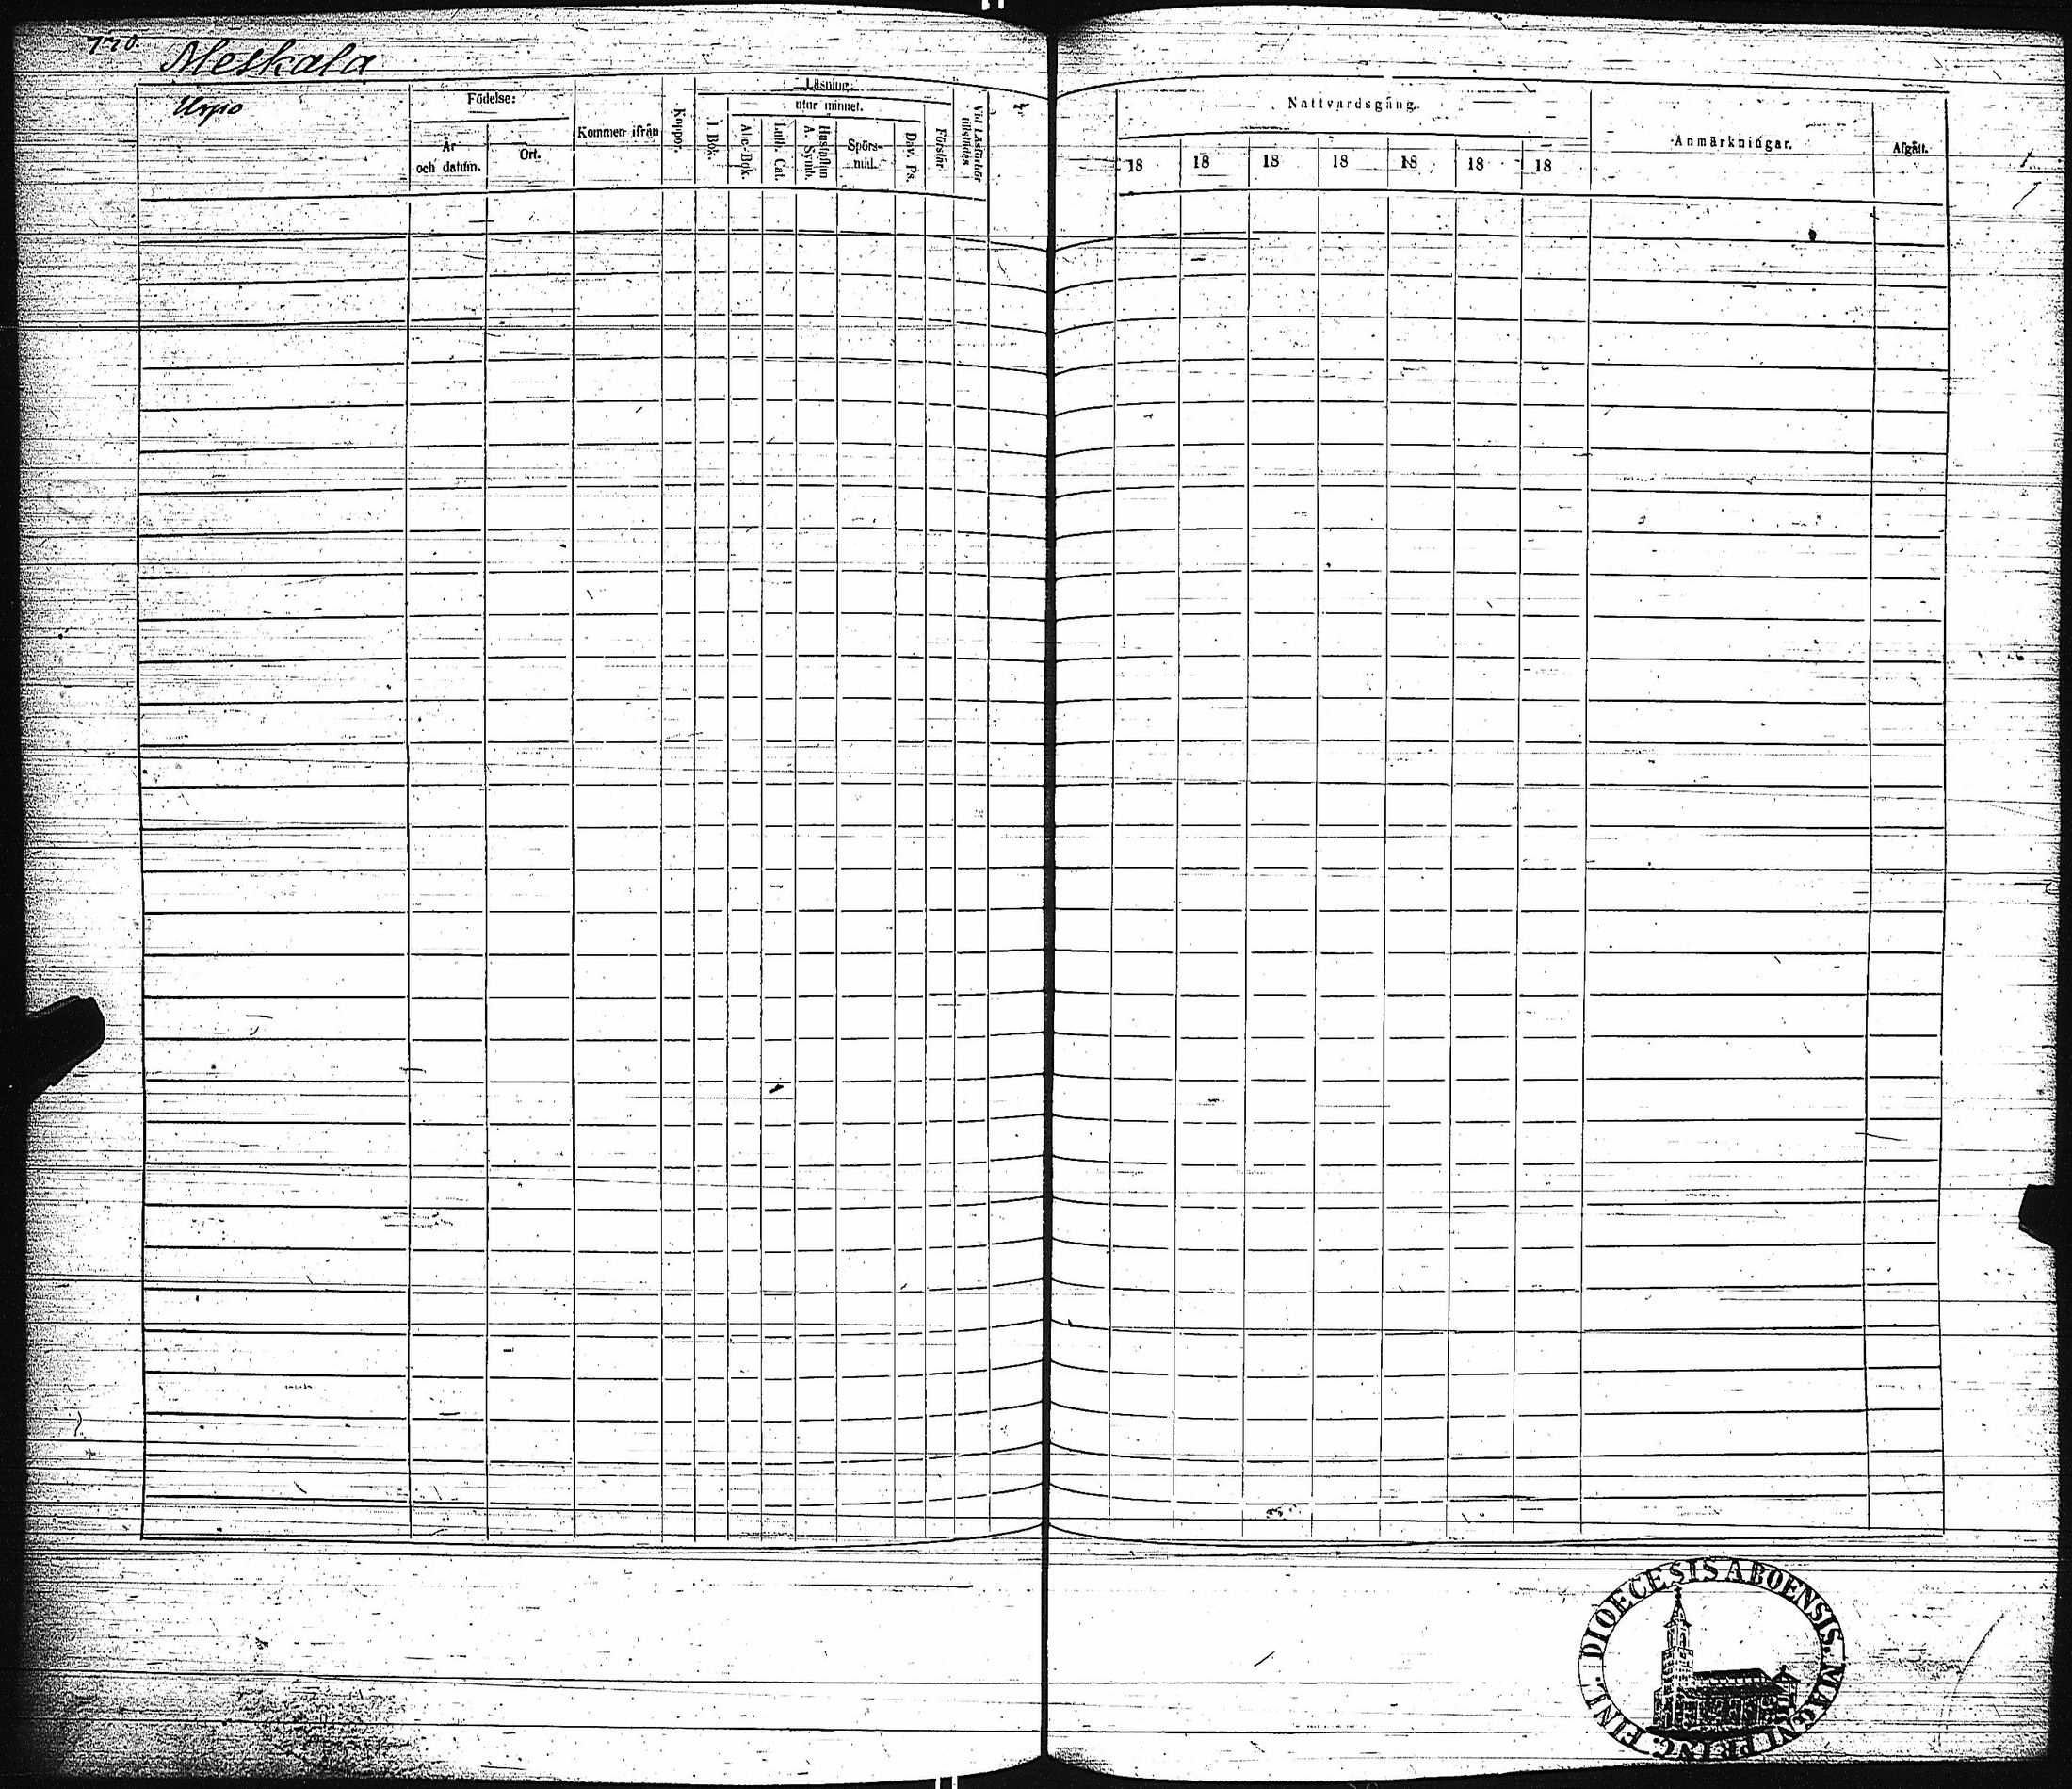 770.
Meskala
Urpo
Födelse:
År
och datum.
Ort.
Kommen ifrån
Koppor.
Läsning:
utur minnet.
I Bok.
Abc-Bok.
Luth. Cat.
Hustaflan
A. Symb.
Spörs-
mål.
Dav. Ps.
Förstår
Vid Läsförhör
tillstädes
Nattvardsgång.
18 18 18 18 18 18 18
Anmärkningar.
Afgått.
DIOECESIS ABOENSIS. MAGNI PRINC. FINL.